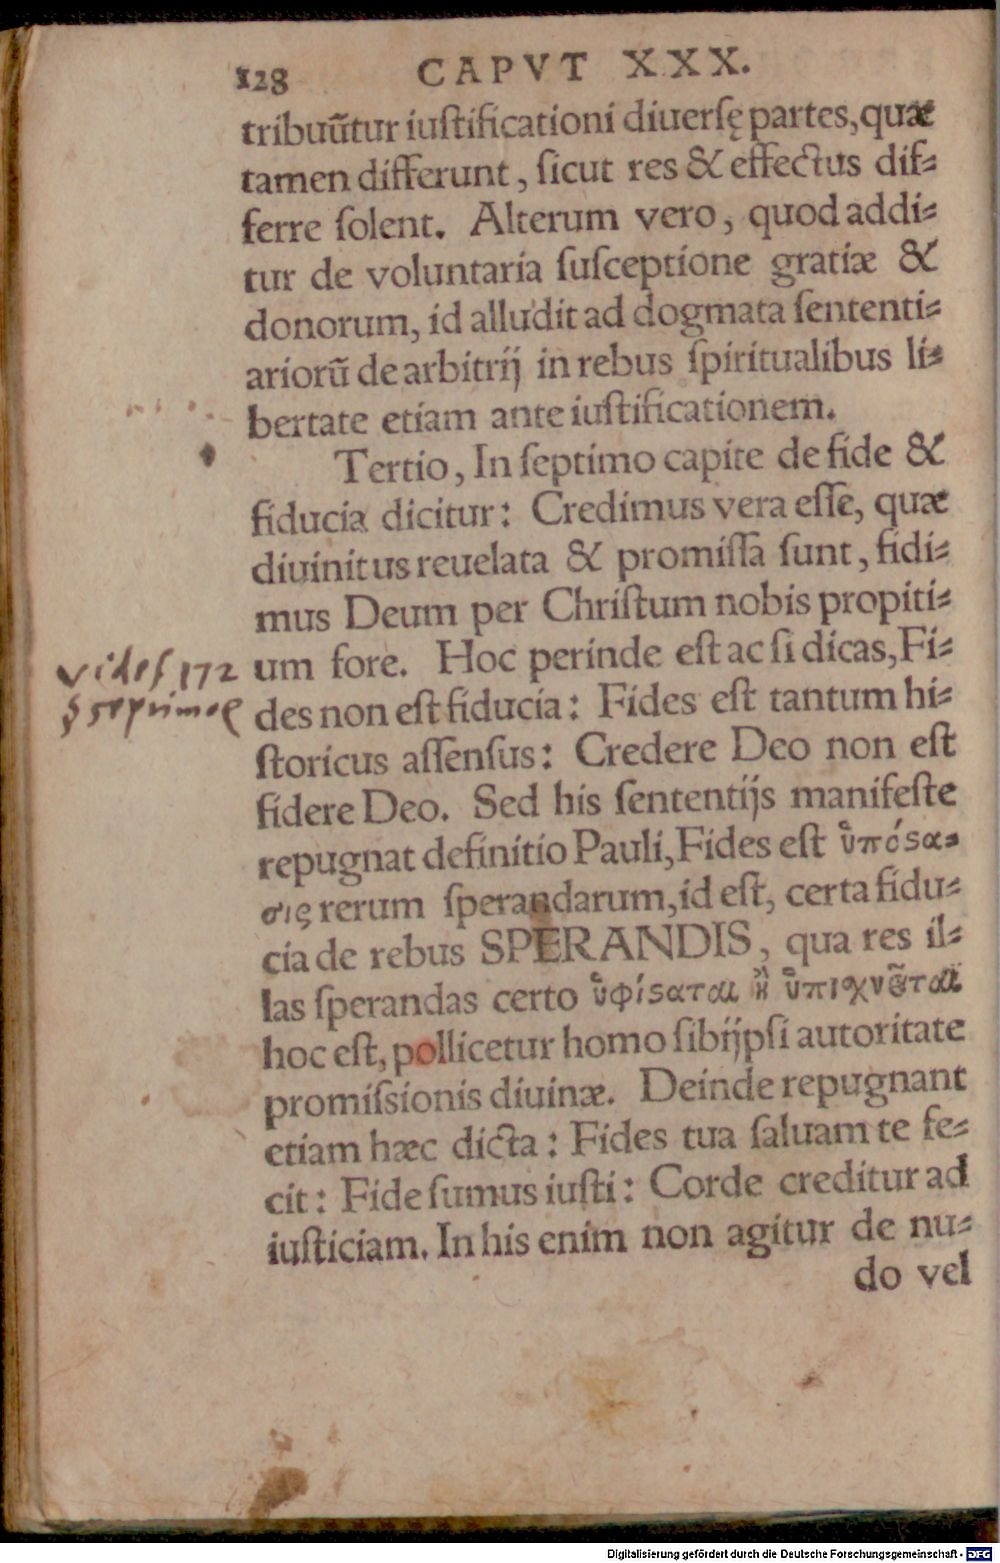 128 CAPVT XXX.
tribuũtur iuſtificationi diuerſę partes, quæ
tamen differunt, ſicut res & effectus dif⸗
ferre ſolent. Alterum vero, quod addi⸗
tur de voluntaria ſuſceptione gratiæ &
donorum, id alludit ad dogmata ſententi⸗
ariorũ de arbitrij in rebus ſpiritualibus li⸗
bertate etiam ante iuſtificationem.
Tertio, In ſeptimo capite de fide &
fiducia dicitur: Credimus vera eſſe, quæ
diuinitus reuelata & promiſſa ſunt, fidi⸗
mus Deum per Chriſtum nobis propiti⸗
um fore. Hoc perinde eſt ac ſi dicas, Fi⸗
des non eſt fiducia: Fides eſt tantum hi⸗
ſtoricus aſſenſus: Credere Deo non eſt
fidere Deo. Sed his ſententijs manifeſte
repugnat definitio Pauli, Fides eſt ὑπόϛα⸗
σις rerum ſperandarum, id eſt, certa fidu⸗
cia de rebus SPERANDIS, qua res il⸗
las ſperandas certo ὑφίϛαται ἢ ὑπιχνῦται
hoc eſt, pollicetur homo ſibijpſi autoritate
promiſsionis diuinæ. Deinde repugnant
etiam hæc dicta: Fides tua ſaluam te fe⸗
cit: Fide ſumus iuſti: Corde creditur ad
iuſticiam. In his enim non agitur de nu⸗
do vel
vide f 172
Digitalisierung gefördert durch die Deutsche Forschungsgemeinschaft - DFG